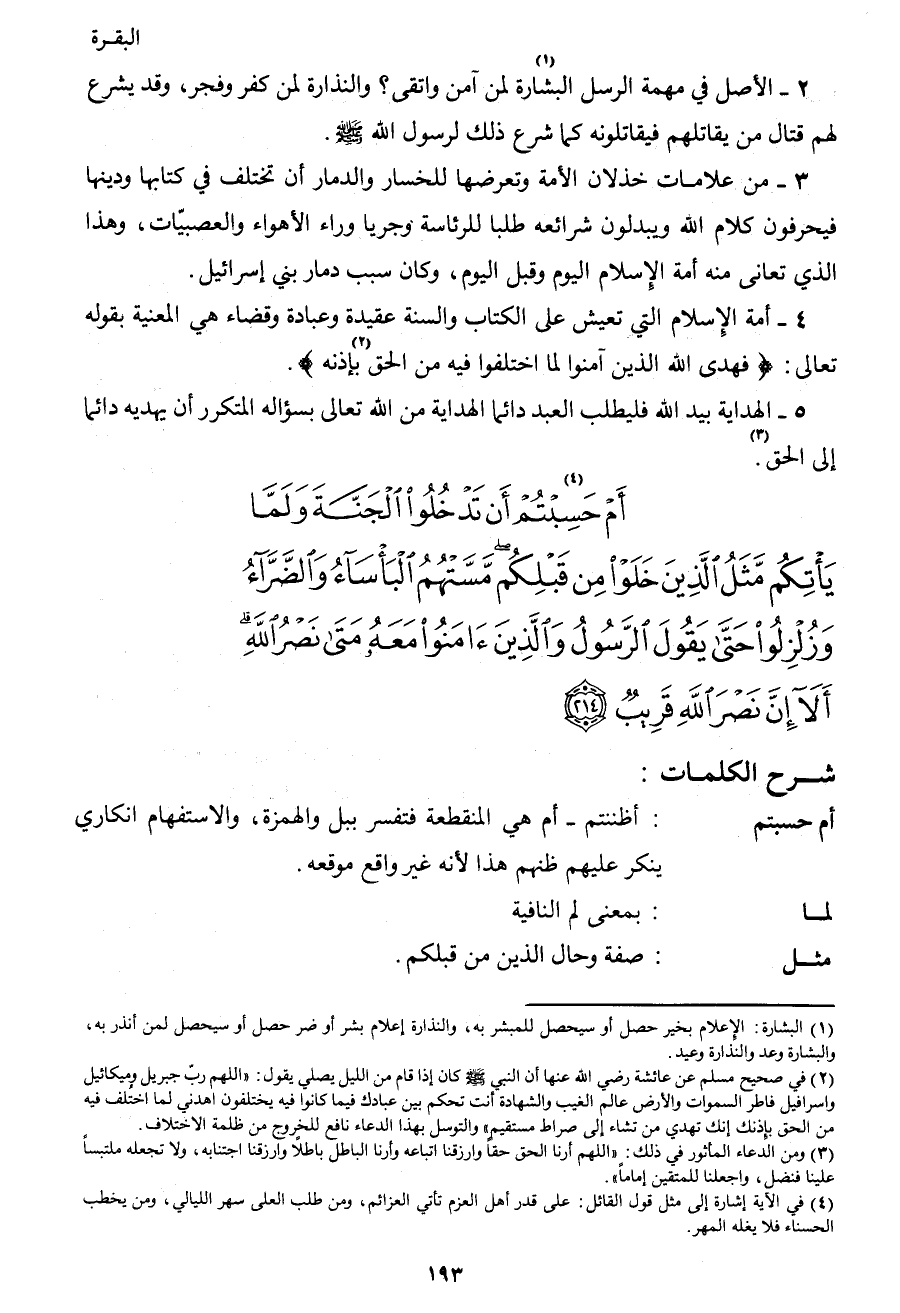 البقـرة
(١)
٢ ـ الأصل في مهمة الرسل البشارة لمن آمن واتقى؟ والنذارة لمن كفر وفجر، وقد يشرع
لهم قتال من يقاتلهم فيقاتلونه كما شرع ذلك لرسول الله ﷺ.
٣ ـ من علامات خذلان الأمة وتعرضها للخسار والدمار أن تختلف في كتابها ودينها
فيحرفون كلام الله ويبدلون شرائعه طلبا للرئاسة وجريا وراء الأهواء والعصبيّات، وهذا
الذي تعانى منه أمة الإسلام اليوم وقبل اليوم، وكان سبب دمار بني إسرائيل.
٤ ـ أمة الإسلام التي تعيش على الكتاب والسنة عقيدة وعبادة وقضاء هي المعنية بقوله
(٢)
تعالى: ﴿ فهدى الله الذين آمنوا لما اختلفوا فيه من الحق بإذنه ﴾.
٥ ـ الهداية بيد الله فليطلب العبد دائما الهداية من الله تعالى بسؤاله المتكرر أن يهديه دائما
(٣)
إلى الحق.
(٤)
أَمْ حَسِبْتُمْ أَن تَدْخُلُوا۟ ٱلْجَنَّةَ وَلَمَّا
يَأْتِكُم مَّثَلُ ٱلَّذِينَ خَلَوْا۟ مِن قَبْلِكُم ۖ مَّسَّتْهُمُ ٱلْبَأْسَآءُ وَٱلضَّرَّآءُ
وَزُلْزِلُوا۟ حَتَّىٰ يَقُولَ ٱلرَّسُولُ وَٱلَّذِينَ ءَامَنُوا۟ مَعَهُۥ مَتَىٰ نَصْرُ ٱللَّهِ ۗ
أَلَآ إِنَّ نَصْرَ ٱللَّهِ قَرِيبٌ ٢١٤
شـرح الكلمـات :
أم حسبتم : أظننتم ـ أم هي المنقطعة فتفسر ببل والهمزة، والاستفهام انكاري
ينكر عليهم ظنهم هذا لأنه غير واقع موقعه.
لمـا : بمعنى لم النافية
مثـل : صفة وحال الذين من قبلكم.
(١) البشارة: الإعلام بخير حصل أو سيحصل للمبشر به، والنذارة إعلام بشر أو ضر حصل أو سيحصل لمن أنذر به،
والبشارة وعد والنذارة وعيد.
(٢) في صحيح مسلم عن عائشة رضي الله عنها أن النبي ﷺ كان إذا قام من الليل يصلي يقول: «اللهم ربّ جبريل وميكائيل
واسرافيل فاطر السموات والأرض عالم الغيب والشهادة أنت تحكم بين عبادك فيما كانوا فيه يختلفون اهدني لما اختلف فيه
من الحق بإذنك إنك تهدي من تشاء إلى صراط مستقيم» والتوسل بهذا الدعاء نافع للخروج من ظلمة الاختلاف.
(٣) ومن الدعاء المأثور في ذلك: «اللهم أرنا الحق حقاً وارزقنا اتباعه وأرنا الباطل باطلاً وارزقنا اجتنابه، ولا تجعله ملتبساً
علينا فنضل، واجعلنا للمتقين إماماً».
(٤) في الآية إشارة إلى مثل قول القائل: على قدر أهل العزم تأتي العزائم، ومن طلب العلى سهر الليالي، ومن يخطب
الحسناء فلا يغله المهر.
١٩٣